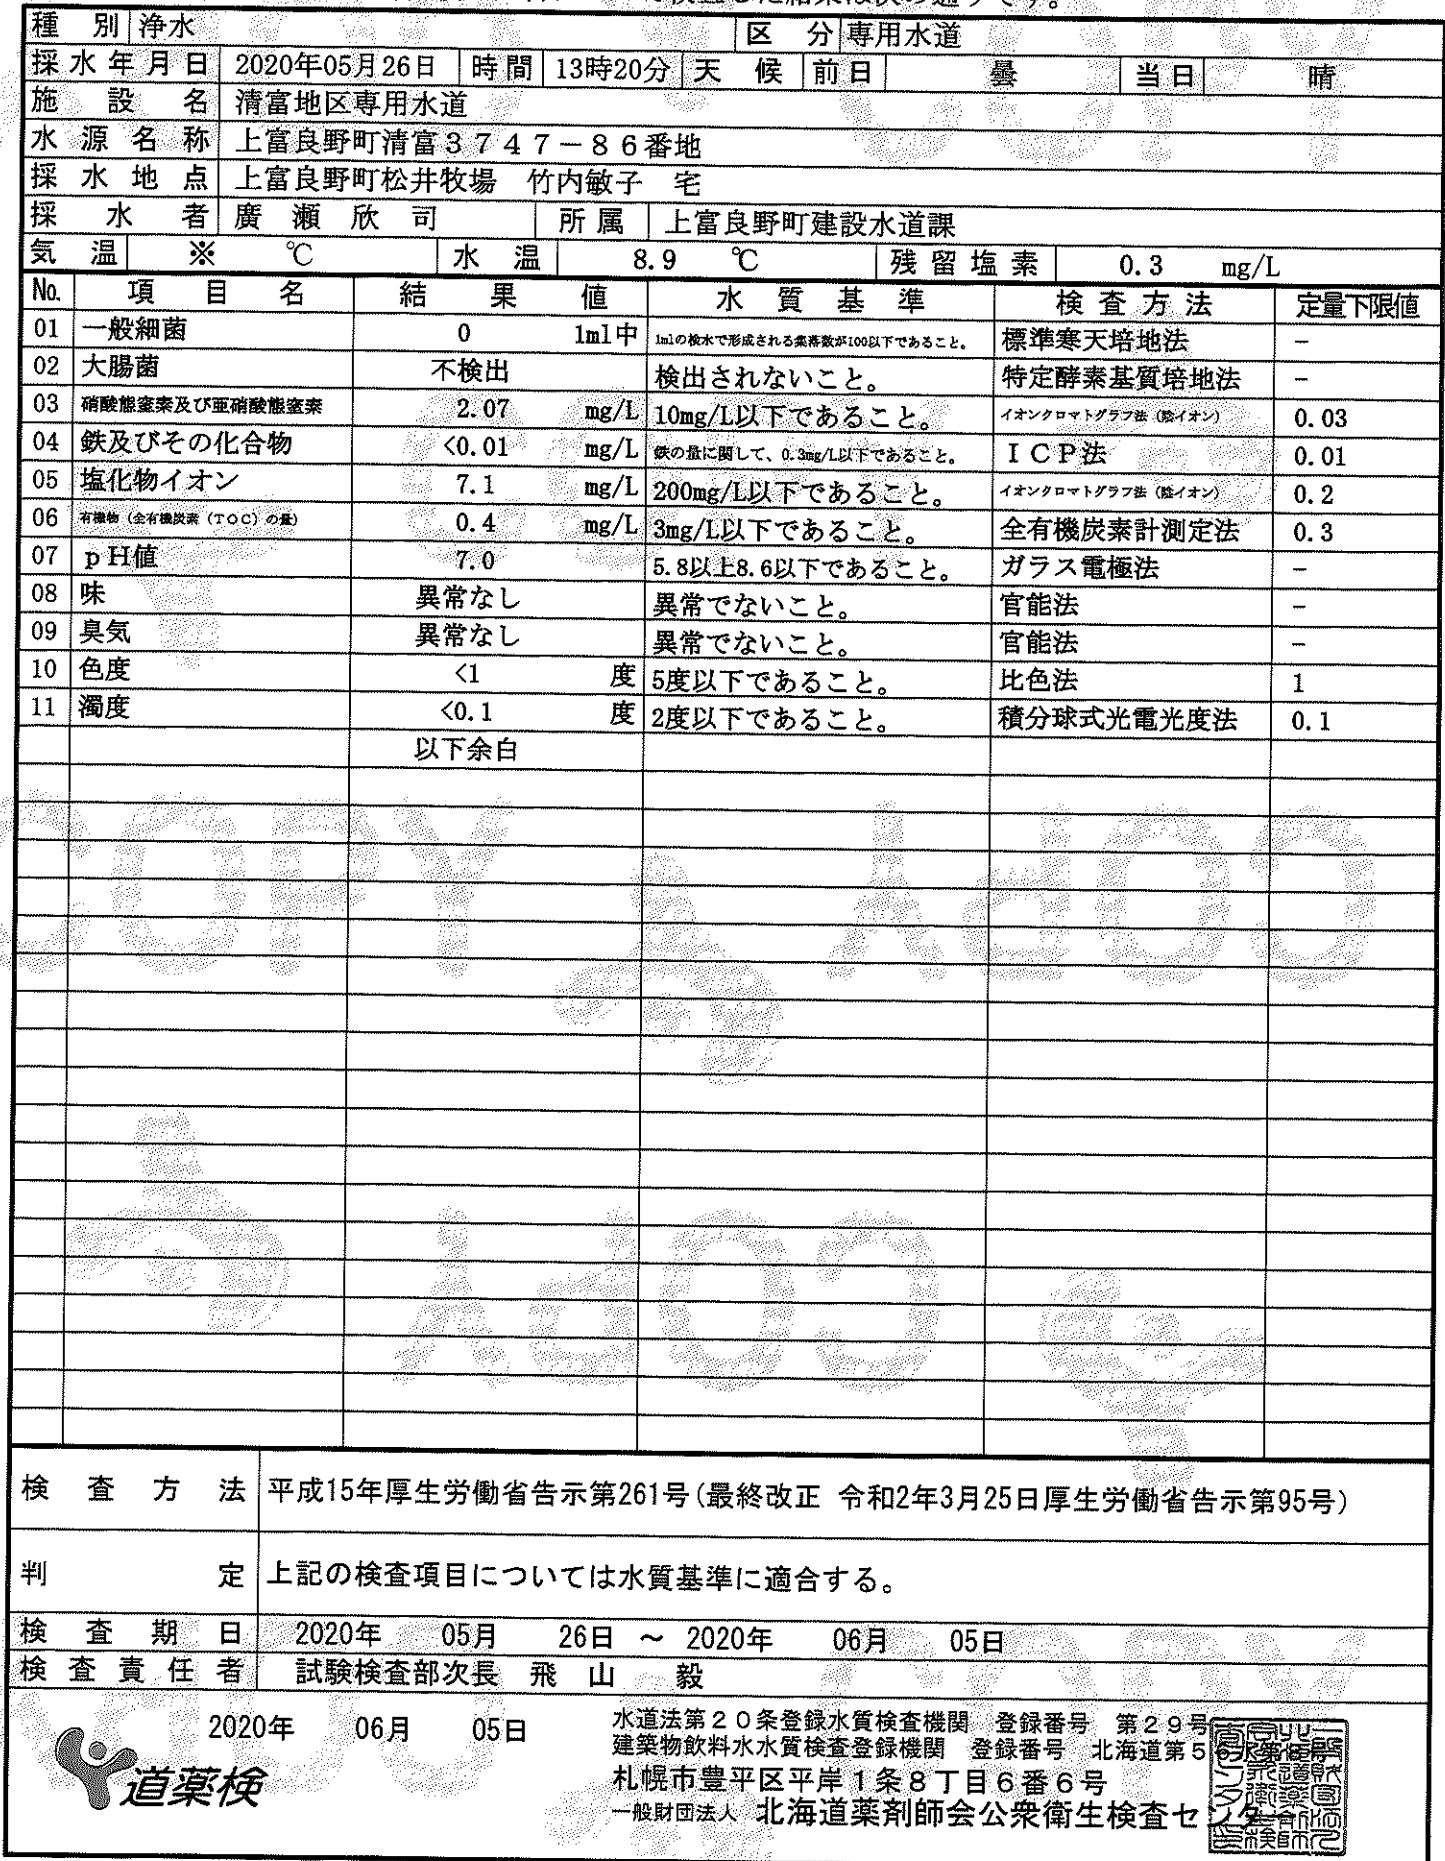 検査した結果は次の通りです。
種別 浄水 区分 専用水道
採水年月日 2020年05月26日 時間 13時20分 天候 前日 曇 当日 晴
施設名 清富地区専用水道
水源名称 上富良野町清富3747-86番地
採水地点 上富良野町松井牧場 竹内敏子 宅
採水者 廣瀬欣司 所属 上富良野町建設水道課
気温 ※ ℃ 水温 8.9 ℃ 残留塩素 0.3 mg/L
No. 項目名 結果値 水質基準 検査方法 定量下限値
01 一般細菌 0 1ml中 1mlの検水で形成される集落数が100以下であること。 標準寒天培地法 -
02 大腸菌 不検出 検出されないこと。 特定酵素基質培地法 -
03 硝酸態窒素及び亜硝酸態窒素 2.07 mg/L 10mg/L以下であること。 イオンクロマトグラフ法(陰イオン) 0.03
04 鉄及びその化合物 <0.01 mg/L 鉄の量に関して、0.3mg/L以下であること。 ICP法 0.01
05 塩化物イオン 7.1 mg/L 200mg/L以下であること。 イオンクロマトグラフ法(陰イオン) 0.2
06 有機物(全有機炭素(TOC)の量) 0.4 mg/L 3mg/L以下であること。 全有機炭素計測定法 0.3
07 pH値 7.0 5.8以上8.6以下であること。 ガラス電極法 -
08 味 異常なし 異常でないこと。 官能法 -
09 臭気 異常なし 異常でないこと。 官能法 -
10 色度 <1 度 5度以下であること。 比色法 1
11 濁度 <0.1 度 2度以下であること。 積分球式光電光度法 0.1
以下余白
COPY COPY
COPY
検査方法 平成15年厚生労働省告示第261号(最終改正 令和2年3月25日厚生労働省告示第95号)
判定 上記の検査項目については水質基準に適合する。
検査期日 2020年 05月 26日 ~ 2020年 06月 05日
検査責任者 試験検査部次長 飛山 毅
2020年 06月 05日
水道法第20条登録水質検査機関 登録番号 第29号
建築物飲料水水質検査登録機関 登録番号 北海道第5
札幌市豊平区平岸1条8丁目6番6号
一般財団法人 北海道薬剤師会公衆衛生検査センター
道薬検